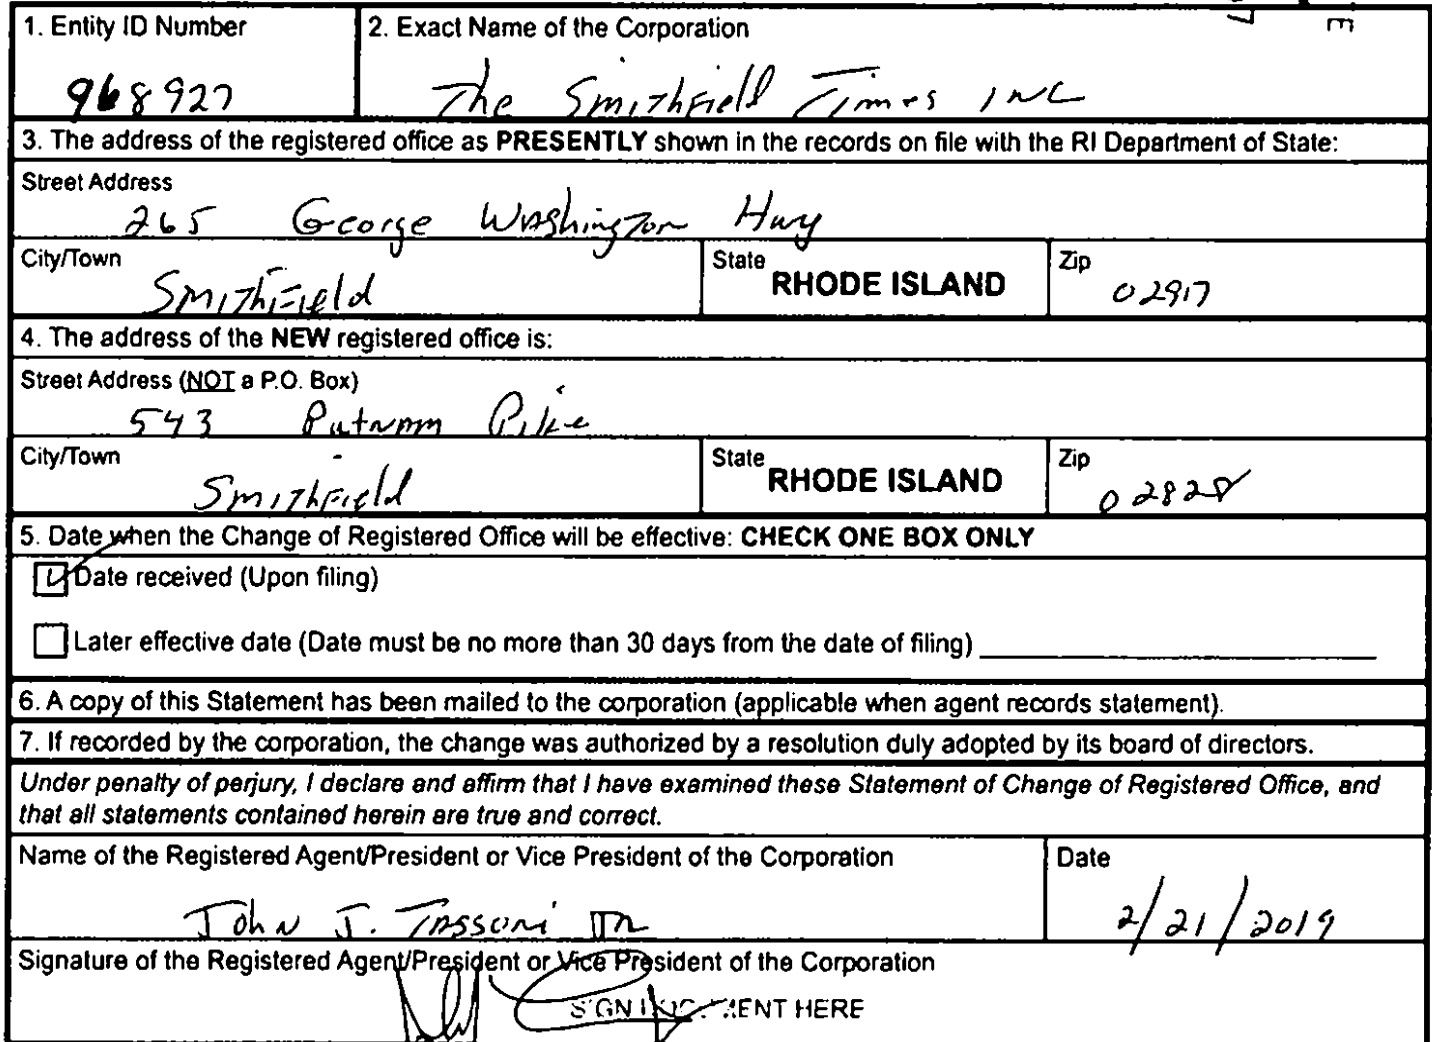 1. Entity ID Number
968927
2. Exact Name of the Corporation
The Smithfield Times INC
3. The address of the registered office as PRESENTLY shown in the records on file with the RI Department of State:
Street Address
265 George Washington Hwy
City/Town
Smithfield
State RHODE ISLAND
Zip
02917
4. The address of the NEW registered office is:
Street Address (NOT a P.O. Box)
543 Putnam Pike
City/Town
Smithfield
State RHODE ISLAND
Zip
02828
5. Date when the Change of Registered Office will be effective: CHECK ONE BOX ONLY
Date received (Upon filing)
Later effective date (Date must be no more than 30 days from the date of filing)
6. A copy of this Statement has been mailed to the corporation (applicable when agent records statement).
7. If recorded by the corporation, the change was authorized by a resolution duly adopted by its board of directors.
Under penalty of perjury, I declare and affirm that I have examined these Statement of Change of Registered Office, and
that all statements contained herein are true and correct.
Name of the Registered Agent/President or Vice President of the Corporation
John J. Tassoni JR
Date
2/21/2019
Signature of the Registered Agent/President or Vice President of the Corporation
SIGN DOCUMENT HERE